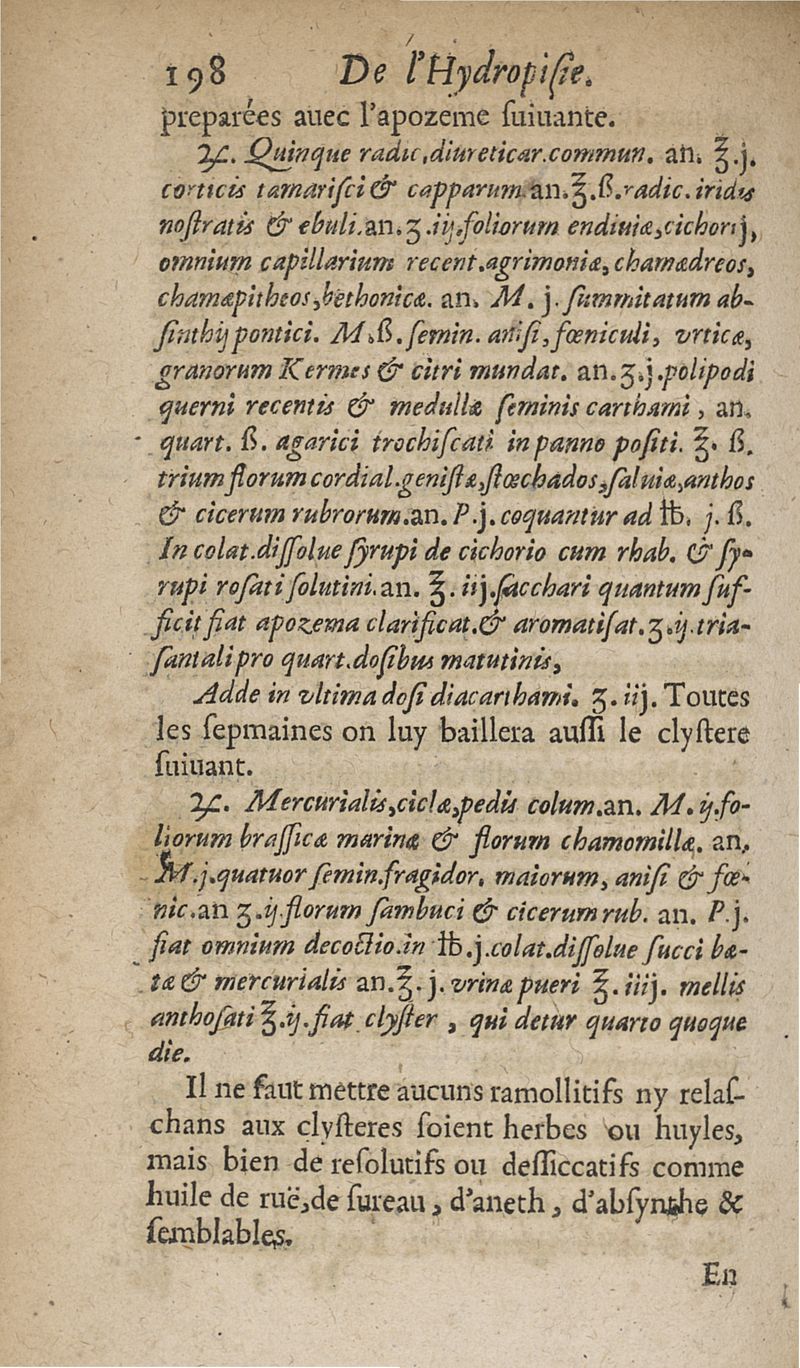 198 De l'Hydropiſie.
preparées auec l'apozeme ſuiuante.
℞. Quinque radic, diureticar. commun. an. ℥.j.
corticis tamariſci & capparum an. ℥.ß. radic. iridis
noſtratis & ebuli. an. ʒ.iij. foliorum endiuiæ, cichorij,
omnium capillarium recent. agrimoniæ, chamædreos,
chamæpitheos, bethonicæ. an. M. j. ſummitatum ab-
ſinthij pontici. M. ß. ſemin. aniſi, fœniculi, vrticæ,
granorum Kermes & citri mundat. an. ʒ.j. polipodi
querni recentis & medullæ ſeminis carthami, an.
quart. ß. agarici trochiſcati in panno poſiti. ℥. ß.
trium florum cordial. geniſtæ, ſtœchados, ſaluiæ, anthos
& cicerum rubrorum. an. P.j. coquantur ad ℔. j. ß.
In colat. diſſolue ſyrupi de cichorio cum rhab. & ſy-
rupi roſati ſolutini. an. ℥. iij. ſacchari quantum ſuf-
ficit fiat apozema clarificat. & aromatiſat. ʒ.ij. tria-
ſantali pro quart. doſibus matutinis,
Adde in vltima doſi diacarthami. ʒ. iij. Toutes
les ſepmaines on luy baillera auſſi le clyſtere
ſuiuant.
℞. Mercurialis, ciclæ, pedis colum. an. M. ij. fo-
liorum braſſicæ marinæ & florum chamomillæ. an,
M.j. quatuor ſemin. fragidor. maiorum, aniſi & fœ-
nic. an ʒ.ij. florum ſambuci & cicerum rub. an. P.j.
fiat omnium decoctio. in ℔.j. colat. diſſolue ſucci bæ-
tæ & mercurialis an. ℥. j. vrinæ pueri ℥. iiij. mellis
anthoſati ℥.ij. fiat clyſter, qui detur quarto quoque
die.
Il ne faut mettre aucuns ramollitifs ny relaſ-
chans aux clyſteres ſoient herbes ou huyles,
mais bien de reſolutifs ou deſſiccatifs comme
huile de ruë, de ſureau, d'aneth, d'abſynthe &
ſemblables.
En